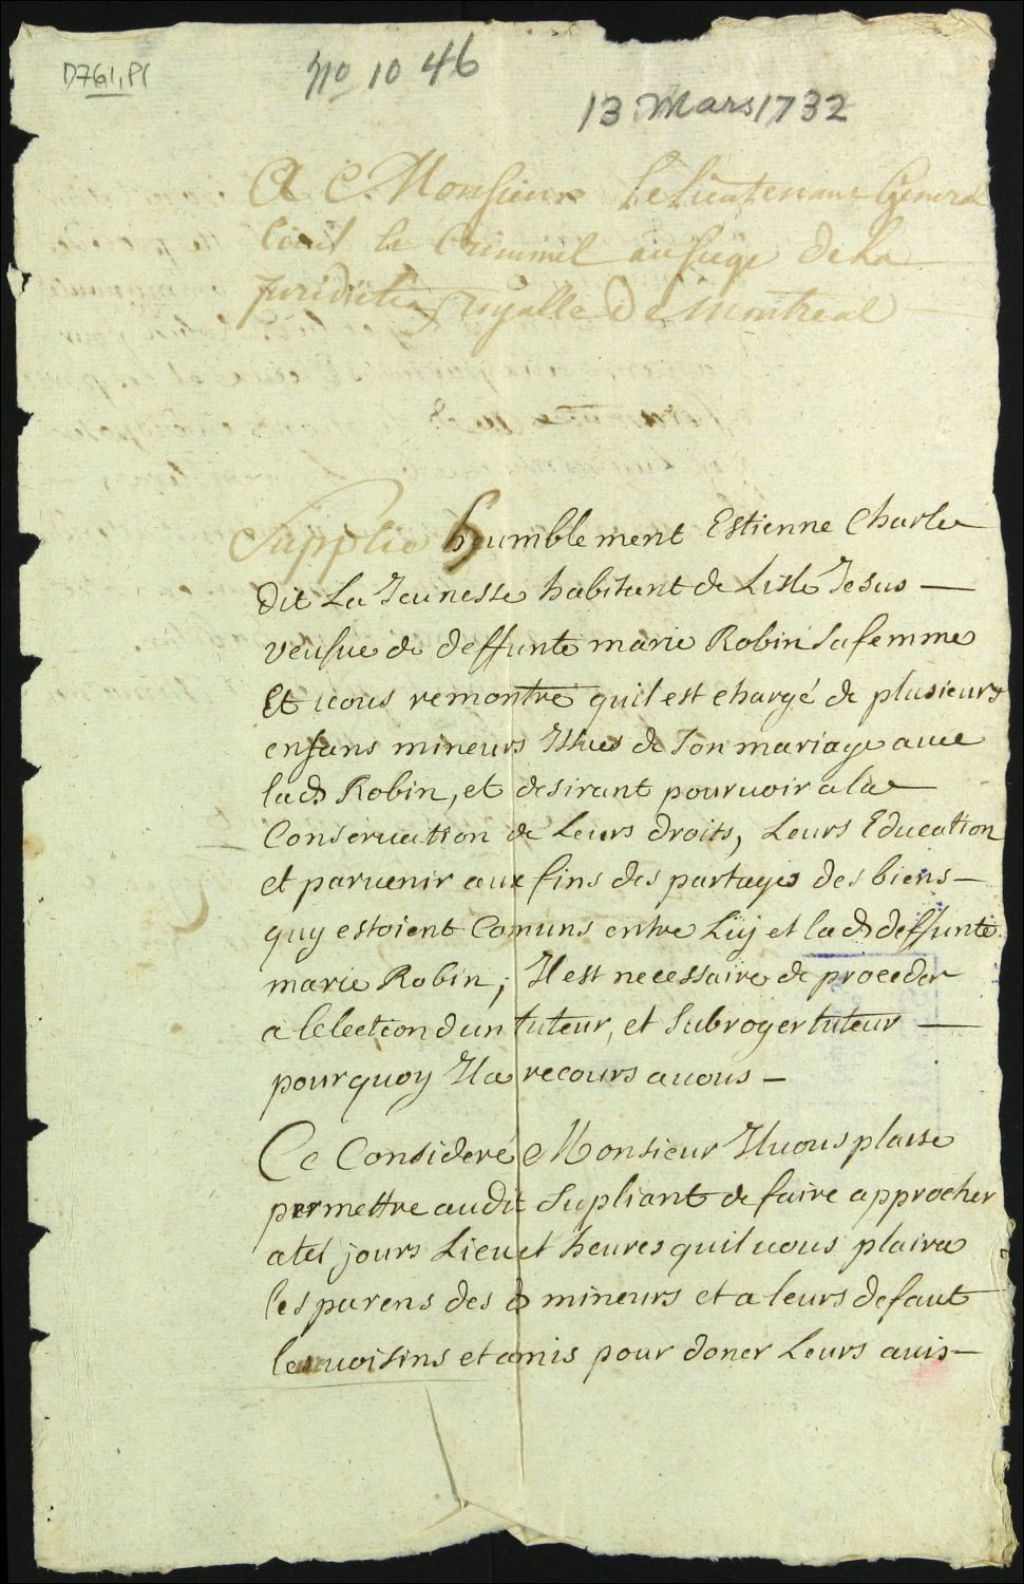 D761,P1
No 10 46
13 Mars 1732
A Monsieur Le Lieutenant General
Civil et Criminel au siege de La
Juridiction Royalle De Montreal
Supplie humblement Estienne Charles
dit La Jeunesse habitant de Lisle Jesus —
veufue de deffunte marie Robin sa femme
Et uous remontre quil est chargé de plusieurs
enfans mineurs Issues de son mariage auec
lad Robin, et desirant pouruoir a la
Conseruation de Leurs droits, Leurs Education
et paruenir aux fins des partages des biens —
quy estoient Comuns entre Luy et lad deffunte
marie Robin; Il est necessaire de proceder
a lelection dun tuteur, et subroger tuteur —
pourquoy Il a recours a uous —
Ce Consideré Monsieur Il uous plaise
permettre audit Supliant de faire approcher
a tel jours Lieu et heures quil uous plaira
les parens des d mineurs et a leurs defaut
les uoisins et amis pour doner Leurs auis —